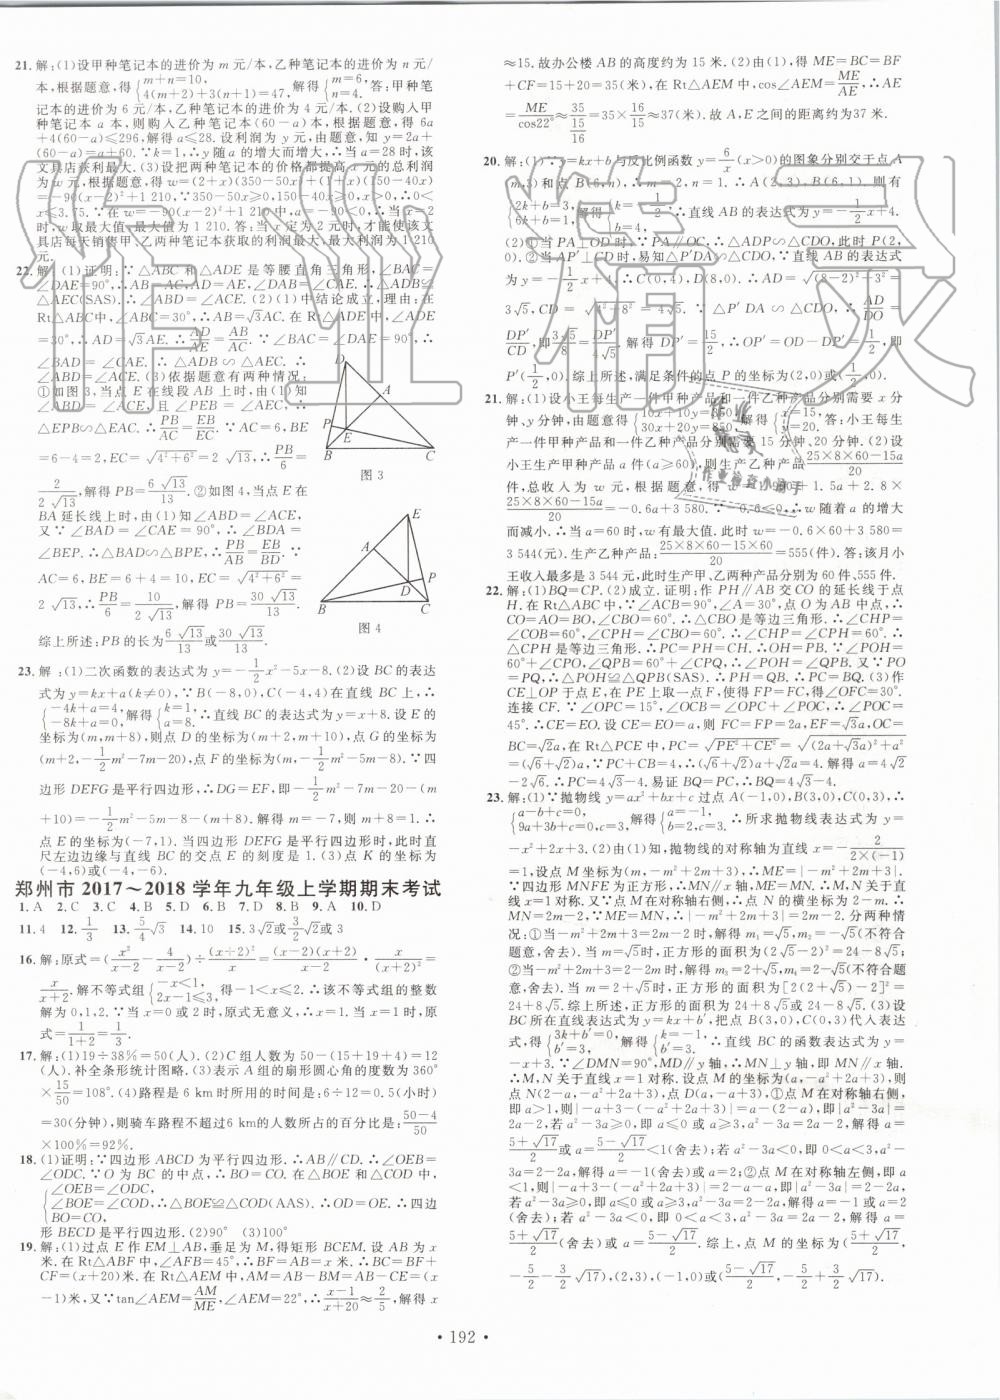 21.解:(1)设甲种笔记本的进价为 m 元/本,乙种笔记本的进价为 n 元/
本,根据题意,得{m+n=10, 4(m+2)+3(n+1)=47, 解得{m=6, n=4. 答:甲种笔
记本的进价为 6 元/本,乙种笔记本的进价为 4 元/本.(2)设购入甲
种笔记本 a 本,则购入乙种笔记本(60-a)本,根据题意,得 6a+
4(60-a)≤296,解得 a≤28.设利润为 y 元,由题意,知 y=2a+
(60-a)=a+60.∵k=1,∴y 随 a 的增大而增大.∴当 a=28 时,该
文具店获利最大.(3)设把两种笔记本的价格都提高 x 元的总利润
为 w 元,根据题意,得 w=(2+x)(350-50x)+(1+x)(150-40x)
=-90(x-2)²+1 210,∵350-50x≥0,
x≤3.75.∵在 w=-90(x-2)²+1 210 中,a=-90<0,∴当 x=2
时,w 取最大值,最大值为 1 210.答:当 x 定为 2 元时,才能使该文
具店每天销售甲、乙两种笔记本获取的利润最大,最大利润为 1 210
元.
22.解:(1)证明:∵△ABC 和△ADE 是等腰直角三角形,∠BAC=
∠DAE=90°,∴AB=AC,AD=AE,∠DAB=∠CAE.∴△ADB≌
△AEC(SAS).∴∠ABD=∠ACE.(2)(1)中结论成立,理由:在
Rt△ABC中,∠ABC=30°,∴AB=√3AC.在 Rt△ADE 中,∠ADE
=30°,∴AD=√3AE.∴AD/AE=AB/AC.∵∠BAC=∠DAE=90°,∴
∠BAD=∠CAE.∴△ADB∽△AEC.∴
∠ABD=∠ACE.(3)依据题意有两种情况:
①如图 3,当点 E 在线段 AB 上时,由(1)知
∠ABD=∠ACE,又∵∠PEB=∠AEC,∴
△EPB∽△EAC.∴PB/AC=EB/EC.∵AC=6,BE
=6-4=2,EC=√(4²+6²)=2√13,∴PB/6=
2/(2√13),解得 PB=6√13/13.②如图 4,当点 E 在
BA 延长线上时,由(1)知∠ABD=∠ACE,
又∵∠BAD=∠CAE=90°,∴∠BDA=
∠BEP.∴△BAD∽△BPE,∴PB/AB=BE/BD.∵
AC=6,BE=6+4=10,EC=√(4²+6²)=
2√13,∴PB/6=10/(2√13),解得 PB=30√13/13.
综上所述:PB 的长为6√13/13或30√13/13.
图 3
图 4
23.解:(1)二次函数的表达式为 y=-1/2x²-5x-8.(2)设 BC 的表达
式为 y=kx+a(k≠0),∵B(-8,0),C(-4,4)在直线 BC 上,∴
{-4k+a=4, -8k+a=0, 解得{k=1, a=8. ∴直线 BC 的表达式为 y=x+8.设 E 的
坐标为(m,m+8),则点 D 的坐标为(m+2,m+10),点 G 的坐标为
(m+2,-1/2m²-7m-20),点 F 的坐标为(m,-1/2m²-5m-8).∵四
边形 DEFG 是平行四边形,∴DG=EF,即-1/2m²-7m-20-(m
+10)=-1/2m²-5m-8-(m+8).解得 m=-7,则 m+8=1.∴
点 E 的坐标为(-7,1).当四边形 DEFG 是平行四边形时,此时直
尺左边边缘与直线 BC 的交点 E 的刻度是 1.(3)点 K 的坐标为
(-4,6)或(-4,-6).
郑州市 2017~2018 学年九年级上学期期末考试
1.A 2.C 3.C 4.B 5.D 6.B 7.D 8.B 9.A 10.D
11.4 12.1/3 13.5/4√3 14.10 15.3√2/2或 3
16.解:原式=(x²/(x-2)-4/(x-2))÷(x+2)²/x=(x-2)(x+2)/(x-2)·x/(x+2)²=
x/(x+2).解不等式组{-x<1, 2x-1≤3, 得-1<x≤2.∴该不等式组的整数
解为 0,1,2.∵当 x=0 或 2 时,原式无意义,∴x=1.当 x=1 时,原
式=1/(1+2)=1/3.
17.解:(1)19÷38%=50(人).(2)C 组人数为 50-(15+19+4)=12
(人).补全条形统计图略.(3)表示 A 组的扇形圆心角的度数为 360°
×15/50=108°.(4)路程是 6 km 时所用的时间是:6÷12=0.5(小时)
=30(分钟),则骑车路程不超过 6 km的人所占的百分比是:(50-4)/50
×100%=92%.
18.(1)证明:∵四边形 ABCD 为平行四边形,∴AB∥CD.∴∠OEB
=∠ODC.∵O 为 BC 的中点,∴BO=CO.在△BOE 和△COD 中,
{∠OEB=∠ODC, ∠BOE=∠COD, BO=CO, ∴△BOE≌△COD(AAS).∴OE=OD.∴四边
形 BECD 是平行四边形.(2)90° (3)100°
19.解:(1)过点 E 作EM⊥AB,垂足为 M,得矩形 BCEM.设 AB 为 x
米.在 Rt△ABF 中,∠AFB=45°,∴BF=AB=x 米.∴BC=BF+
CF=(x+20)米.在 Rt△AEM 中,AM=AB-BM=AB-CE=(x
-1)米,又∵tan∠AEM=AM/ME,∠AEM=22°,∴(x-1)/(x+20)≈2/5,解得 x
≈15.故办公楼 AB 的高度约为 15 米.(2)由(1),得 ME=BC=BF
+CF=15+20=35(米).在 Rt△AEM 中,cos∠AEM=ME/AE,∴AE
=ME/cos22°≈35/(15/16)=35×16/15≈37(米).故 A,E 之间的距离约为37 米.
20.解:(1)∵y=kx+b 与反比例函数 y=6/x(x>0)的图象分别交于点 A
(m,3)和点 B(6,n),∴m=2,n=1.∴A(2,3),B(6,1),则有
{2k+b=3, 6k+b=1, 解得{k=-1/2, b=4, ∴直线 AB 的表达式为 y=-1/2x+4.
(2)①当 PA⊥OD 时,∵PA∥OC,∴△ADP∽△CDO,此时 P(2,
0).②当 AP′⊥CD 时,易知△P′DA∽△CDO,∵直线 AB 的表达式
为 y=-1/2x+4,∴C(0,4),D(8,0).∴AD=√((8-2)²+3²)=
3√5,CD=√(4²+8²)=4√5.∵△P′DA∽△CDO,∴AD/DO=
DP′/CD,即3√5/8=DP′/4√5.解得 DP′=15/2,∴OP′=OD-DP′=1/2,即
P′(1/2,0).综上所述,满足条件的点 P 的坐标为(2,0)或(1/2,0).
21.解:(1)设小王每生产一件甲种产品和一件乙种产品分别需要 x 分
钟,y分钟,由题意,得{10x+10y=350, 30x+20y=850, 解得{x=15, y=20.答:小王每生
产一件甲种产品和一件乙种产品分别需要 15 分钟、20 分钟.(2)设
小王生产甲种产品 a 件(a≥60),则生产乙种产品(25×8×60-15a)/20
件,总收入为 w 元.根据题意,得 w=1900+1.5a+2.8×
(25×8×60-15a)/20=-0.6a+3 580,∵-0.6<0,∴w 随着 a 的增大
而减小.∴当 a=60 时,w 有最大值.此时 w=-0.6×60+3 580=
3 544(元).生产乙种产品:(25×8×60-15×60)/20=555(件).答:该月小
王收入最多是 3 544 元,此时生产甲、乙两种产品分别为 60 件、555件.
22.解:(1)BQ=CP.(2)成立.证明:作 PH∥AB 交CO 的延长线于点
H.在 Rt△ABC 中,∵∠ACB=90°,∠A=30°,点 O 为 AB 中点,∴
CO=AO=BO,∠CBO=60°.∴△CBO 是等边三角形.∴∠CHP=
∠COB=60°,∠CPH=∠CBO=60°.∴∠CHP=∠CPH=60°.∴
△CPH 是等边三角形.∴PC=PH=CH.∴OH=PB.∵∠OPB=
60°+∠CPO,∠QPH=60°+∠CPO,∴∠OPH=∠QPB.又∵PO
=PQ,∴△POH≌△QPB(SAS).∴PH=QB.∴PC=BQ.(3)作
CE⊥OP 于点 E,在 PE 上取一点 F,使得 FP=FC,得∠OFC=30°.
连接 CF.∵∠OPC=15°,∠OCB=∠OPC+∠POC,∴∠POC=
45°.∴CE=EO.设 CE=EO=a,则 FC=FP=2a,EF=√3a,OC=
BC=√2a,在 Rt△PCE 中,PC=√(PE²+CE²)=√((2a+√3a)²+a²)
=(√6+√2)a.∵PC+CB=4,∴(√6+√2)a+√2a=4.解得 a=4√2
-2√6.∴PC=4√3-4.易证 BQ=PC,∴BQ=4√3-4.
23.解:(1)∵抛物线 y=ax²+bx+c 过点 A(-1,0),B(3,0),C(0,3),
∴{a-b+c=0, 9a+3b+c=0, c=3, 解得{a=-1, b=2, c=3. ∴所求抛物线表达式为 y=
-x²+2x+3.(2)由(1)知,抛物线的对称轴为直线 x=-2/(2×(-1))
=1,设点 M 坐标为(m,-m²+2m+3),∴ME=|-m²+2m+3|.
∵四边形 MNFE 为正方形,∴MN=ME.∵点 M,N 关于直线 x=1
对称,又∵点 M 在对称轴右侧,∴点 N 的横坐标为 2-m.∴
MN=2m-2,∵MN=ME,∴|-m²+2m+3|=2m-2.分两种情
况:①当-m²+2m+3=2m-2 时,解得 m₁=√5,m₂=-√5(不符合
题意,舍去).当 m=√5时,正方形的面积为(2√5-2)²=24-8√5.
②当-m²+2m+3=2-2m 时,解得 m₃=2+√5,m₄=2-√5(不符合题
意,舍去).当 m=2+√5时,正方形的面积为[2(2+√5)-2]²=
24+8√5.综上所述,正方形的面积为 24+8√5或 24-8√5.(3)设
BC 所在直线表达式为 y=kx+b′,把点 B(3,0),C(0,3)代入表达
式,得{3k+b′=0, b′=3, 解得{k=-1, b′=3, ∴直线 BC 的函数表达式为 y=
-x+3.∵∠MDN=90°,MD∥y 轴,∴MN⊥y 轴,即 MN∥x 轴.
∴M,N 关于直线 x=1 对称.设点 M 的坐标为(a,-a²+2a+3),则
点 N(2-a,-a²+2a+3),点 D(a,-a+3),①点 M 在对称轴右侧,
即 a>1,则|-a+3-(-a²+2a+3)|=a-(2-a),即|a²-3a|=
|2a-2|.若 a²-3a≥0,即 a≤0 或 a≥3,a²-3a=2a-2,解得 a=
(5+√17)/2或 a=(5-√17)/2<1(舍去);若 a²-3a<0,即 0<a<3,a²-3a
=2-2a,解得 a=-1(舍去)或 a=2;②点 M 在对称轴左侧,即 a<
1,则|-a+3-(-a²+2a+3)|=2-a-a,即|a²-3a|=|2-2a|.若
a²-3a≥0,即 a≤0 或 a≥3,a²-3a=2-2a,解得 a=-1 或 a=2
(舍去);若 a²-3a<0,即 0<a<3,a²-3a=2a-2,解得 a=
(5+√17)/2(舍去)或 a=(5-√17)/2.综上,点 M 的坐标为((5+√17)/2,
-5/2-3/2√17),(2,3),(-1,0)或((5-√17)/2,-5/2+3/2√17).
· 192 ·